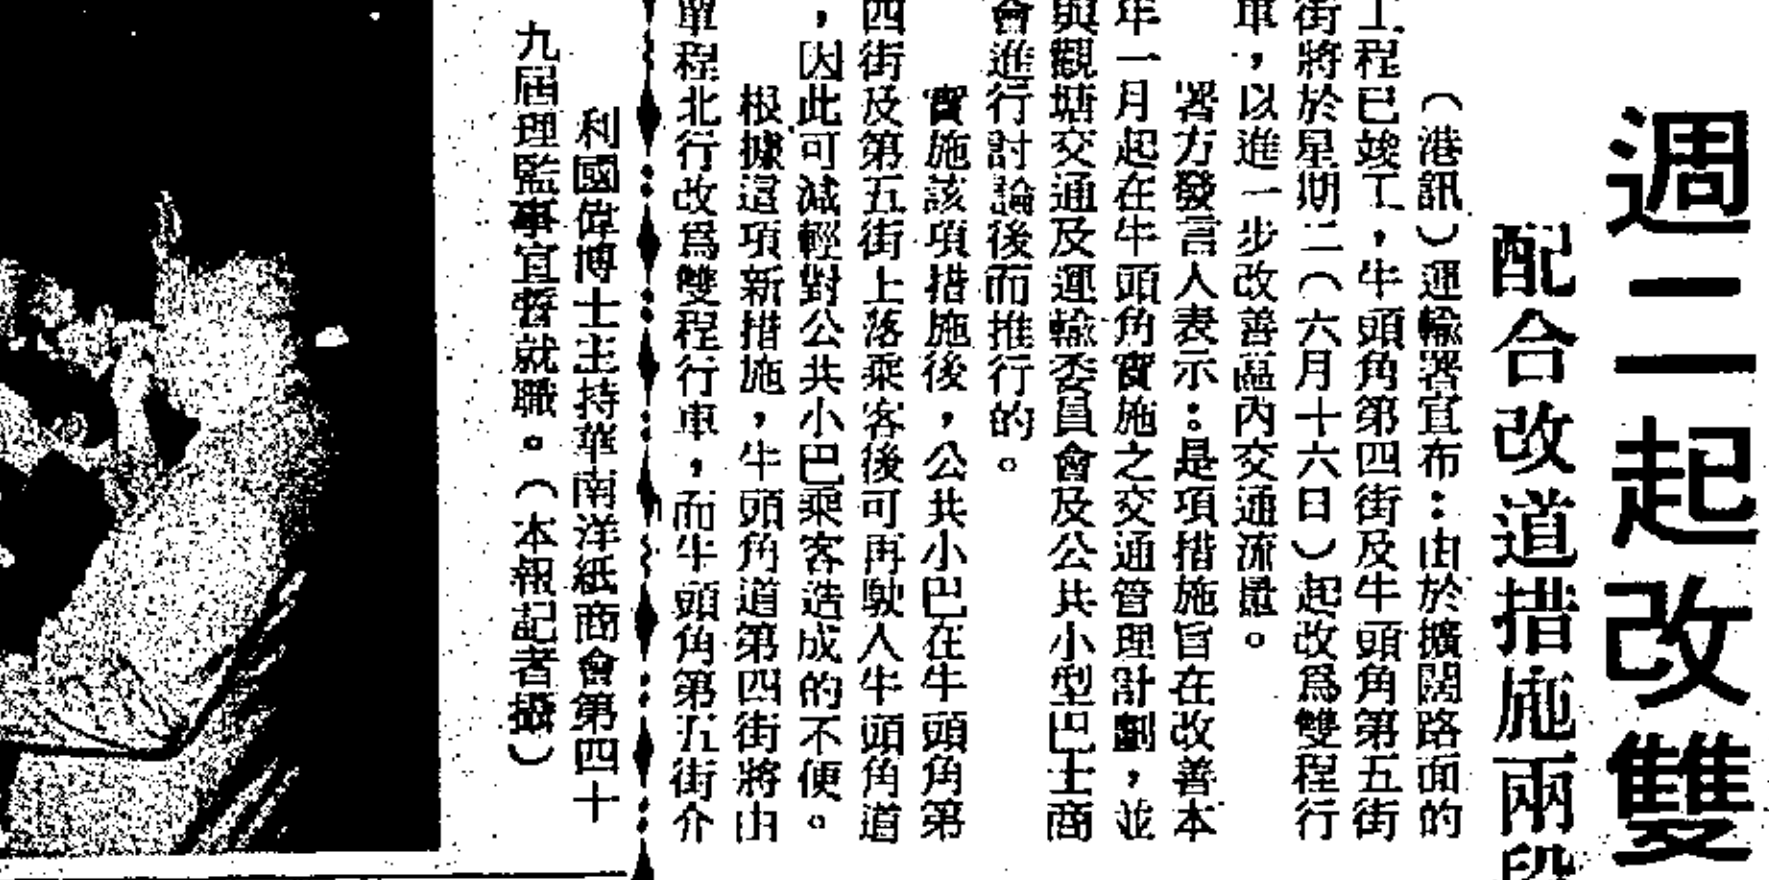 週二起改雙
配合改道措施兩段
（港訊）運輸署宣布：由於擴闊路面的
工程已竣工，牛頭角第四街及牛頭角第五街
街將於星期二（六月十六日）起改爲雙程行
車，以進一步改善區內交通流量。
署方發言人表示：是項措施旨在改善本
年一月起在牛頭角實施之交通管理計劃，並
與觀塘交通及運輸委員會及公共小型巴士商
會進行討論後而推行的。
實施該項措施後，公共小巴在牛頭角第
四街及第五街上落乘客後可再駛入牛頭角道
，因此可減輕對公共小巴乘客造成的不便。
根據這項新措施，牛頭角道第四街將由
單程北行改爲雙程行車，而牛頭角第五街介
利國偉博士主持華南洋紙商會第四十
九屆理監事宣誓就職。（本報記者攝）